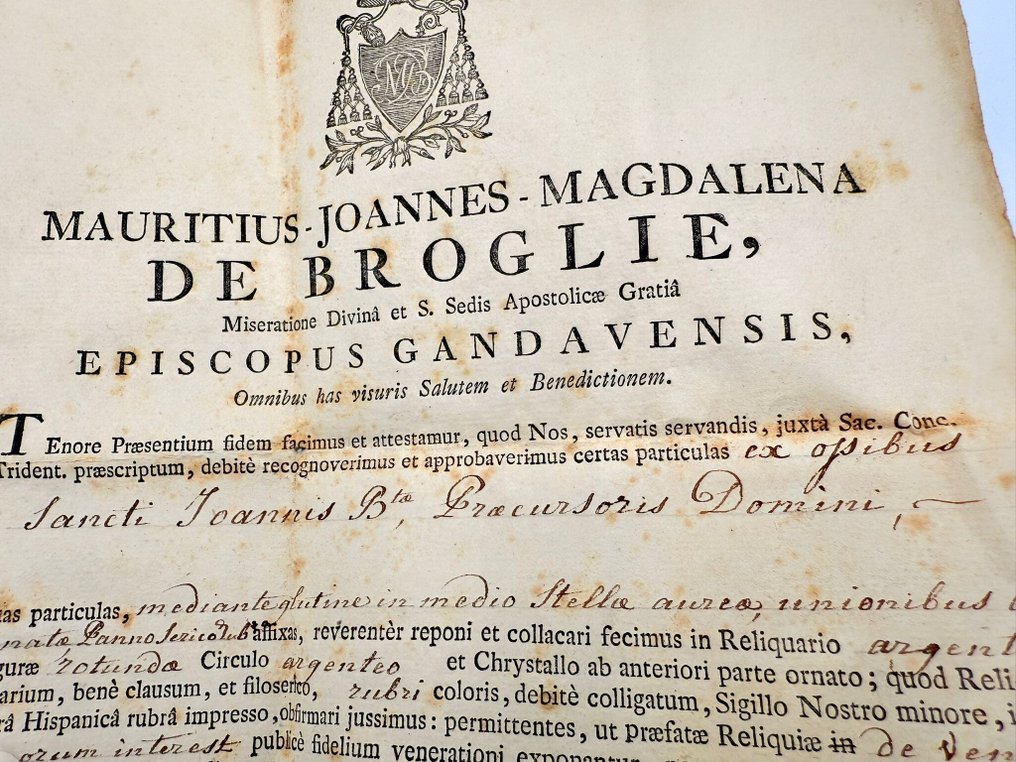 MDB
MAURITIUS-JOANNES-MAGDALENA
DE BROGLIE,
Miseratione Divinâ et S. Sedis Apostolicæ Gratiâ
EPISCOPUS GANDAVENSIS,
Omnibus has visuris Salutem et Benedictionem.
TEnore Præsentium fidem facimus et attestamur, quod Nos, servatis servandis, juxtà Sac. Conc.
Trident. præscriptum, debitè recognoverimus et approbaverimus certas particulas ex ossibus
Sancti Joannis Btæ, Præcursoris Domini,
particulas, mediante glutine in medio Stellæ aureæ, unionibus
Panno Serico affixas, reverentèr reponi et collacari fecimus in Reliquario argent
guræ rotundæ Circulo argenteo et Chrystallo ab anteriori parte ornato; quod Reli
arium, benè clausum, et filoserico, rubri coloris, debitè colligatum, Sigillo Nostro minore, i
râ Hispanicâ rubrâ impresso, obfirmari jussimus: permittentes, ut præfatæ Reliquiæ in de ven
orum interest publicè fidelium venerationi exponantur.